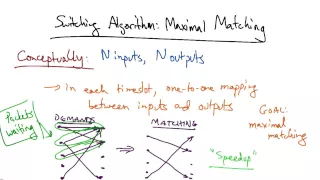 Switching Algorithm: Maximal Matching
Conceptually: N inputs, N outputs
→ In each timeslot, one-to-one mapping
between inputs and outputs
GOAL:
maximal
matching
Packets
waiting
DEMANDS
MATCHING
"Speedup"